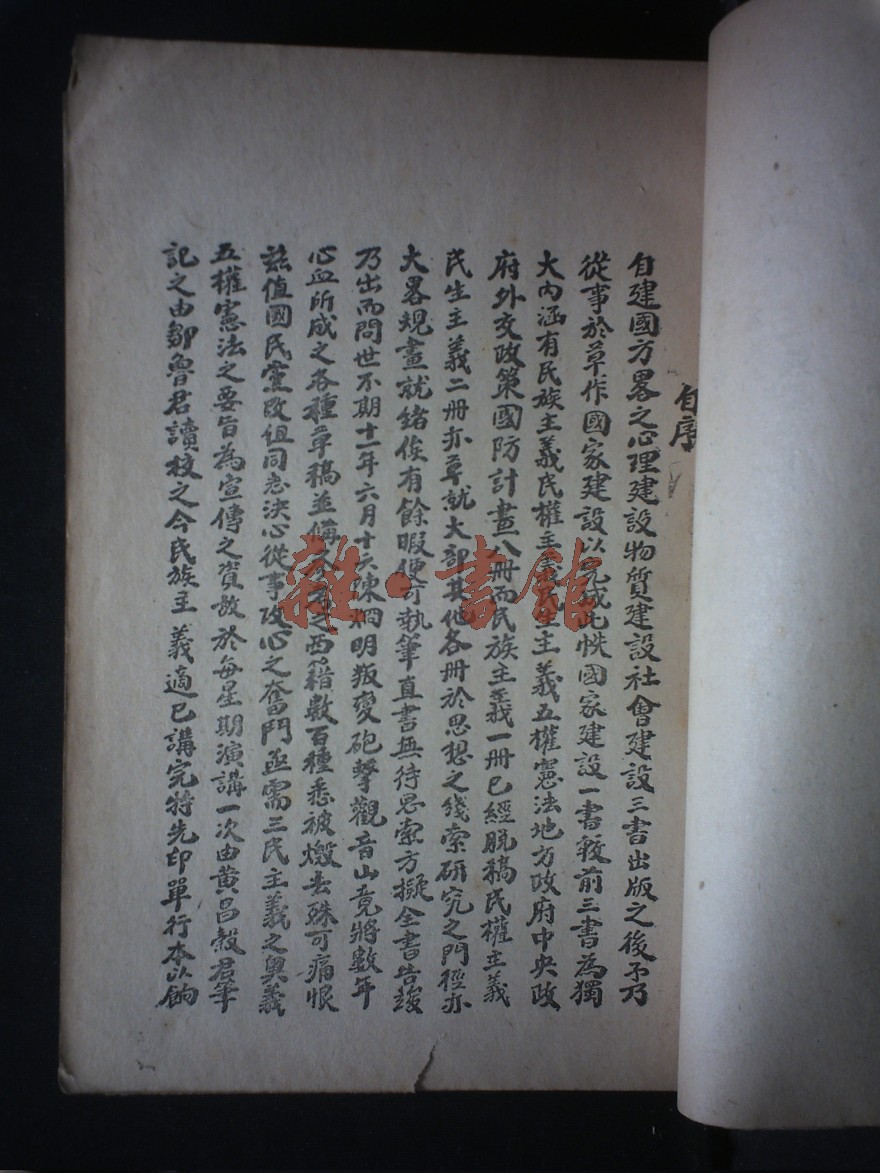 自序
自建國方畧之心理建設物質建設社會建設三書出版之後予乃
從事於草作國家建設以完成此帙國家建設一書較前三書為獨
大內涵有民族主義民權主義民生主義五權憲法地方政府中央政
府外交政策國防計畫八冊而民族主義一冊已經脫稿民權主義
民生主義二冊亦草就大部其他各冊於思想之綫索研究之門徑亦
大畧規畫就緒俟有餘暇便可執筆直書無待思索方擬全書告竣
乃出而問世不期十一年六月十六陳炯明叛變砲擊觀音山竟將數年
心血所成之各種草稿並備參考之西籍數百種悉被燬去殊可痛恨
茲值國民黨改組同志決心從事攻心之奮鬥亟需三民主義之奧義
五權憲法之要旨為宣傳之資故於每星期演講一次由黃昌穀君筆
記之由鄒魯君讀校之今民族主義適已講完特先印單行本以餉
雜·書館